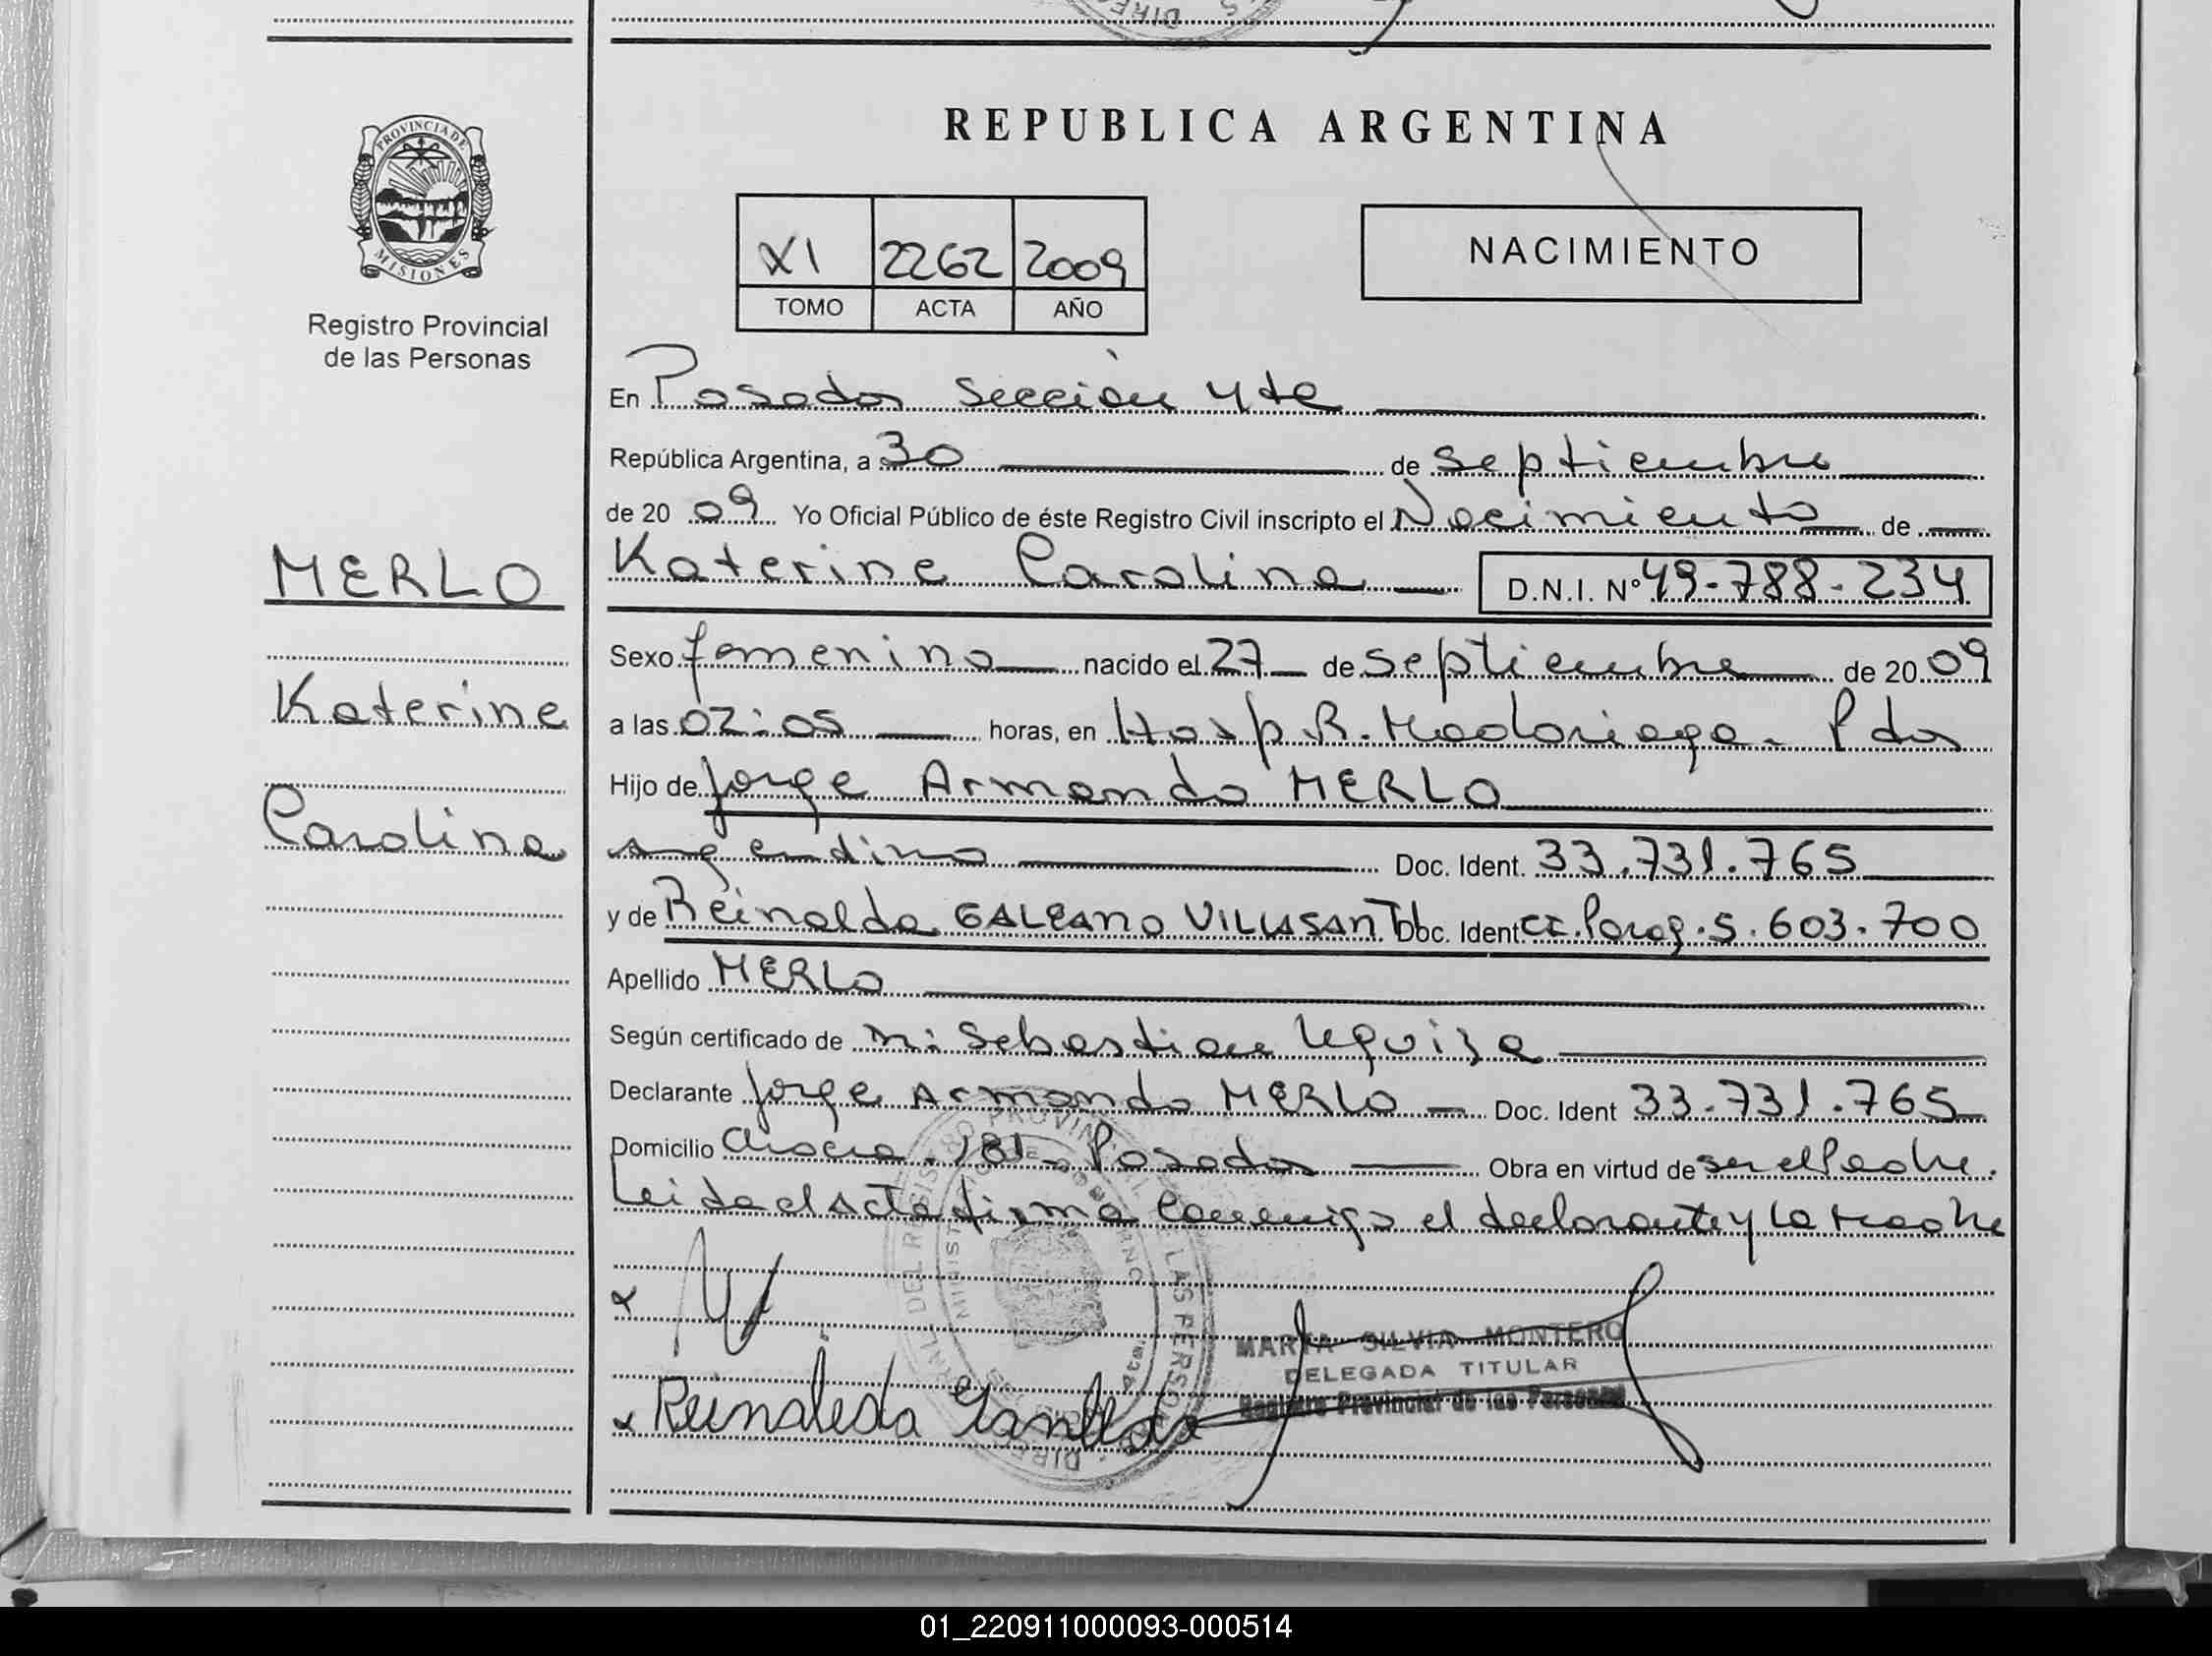 REPUBLICA ARGENTINA
PROVINCIA DE
MISIONES
Registro Provincial
de las Personas
XI 2262 2009
TOMO ACTA AÑO
NACIMIENTO
MERLO
Katerine
Carolina
En Posadas Sección 4ta
República Argentina, a 30 de septiembre
de 2009 Yo Oficial Público de éste Registro Civil inscripto el Nacimiento de
Katerine Carolina D.N.I. Nº 49-788-234
Sexo femenino nacido el 27 de septiembre de 2009
a las 02:05 horas, en Hosp. R. Madariaga - Pdas
Hijo de Jorge Armando MERLO
argentino Doc. Ident. 33.731.765
y de Reinalda GALEANO VILLASANT Doc. Ident CI. Parag. 5.603.700
Apellido MERLO
Según certificado de Sebastian
Declarante Jorge Armando MERLO - Doc. Ident 33.731.765
Domicilio 181 - Posadas Obra en virtud de ser el Padre.
Leida el Acta firma conmigo el declarante y la Madre
MARTA SILVIA MONTERO
DELEGADA TITULAR
Registro Provincial de las Personas
01_220911000093-000514